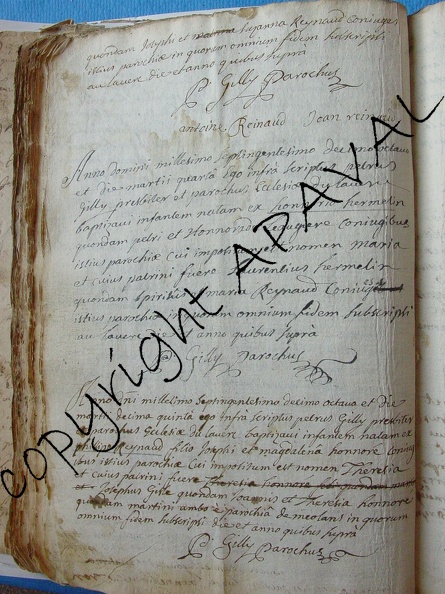 quondam Josephi et Susanna Reynaud Coniuges
istius parochiæ in quorum omnium fidem subscripsi
au lavere die et anno quibus suprà
P Gilly Parochus
antoine Reinaud Joan reinaud
Anno domini millesimo septingentesimo decimo octavo
et die martii quarta Ego infrà scriptus petrus
Gilly presbiter et parochus Eclesiæ du lavere
baptisavi infantem natam ex honnorio hermelin
quondam petri et Honnorada Coniugibus
istius parochiæ cui impositum est nomen maria
et cuius patrini fuere Laurentius hermelin
quondam Spiritus et maria Reynaud Coniuges
istius parochiæ in quorum omnium fidem subscripsi
au lavere die et anno quibus suprà
P Gilly Parochus
Anno dni millesimo Septingentesimo decimo octavo et die
martii decima quinta ego infrà scriptus petrus Gilly presbiter
et parochus Eclesiæ du lavere baptisavi infantem natam ex
Reynaud filio Josephi et magdalena honnore coniugibus
istius parochiæ Cui impositum est nomen Theresia
et cuius patrini fuere Theresia honnore
Josephus Gille quondam Joannis et Theresia honnore
quondam martini ambo e parochia de meolans in quorum
omnium fidem subscripsi die et anno quibus suprà
P Gilly Parochus
copyright APAVAL